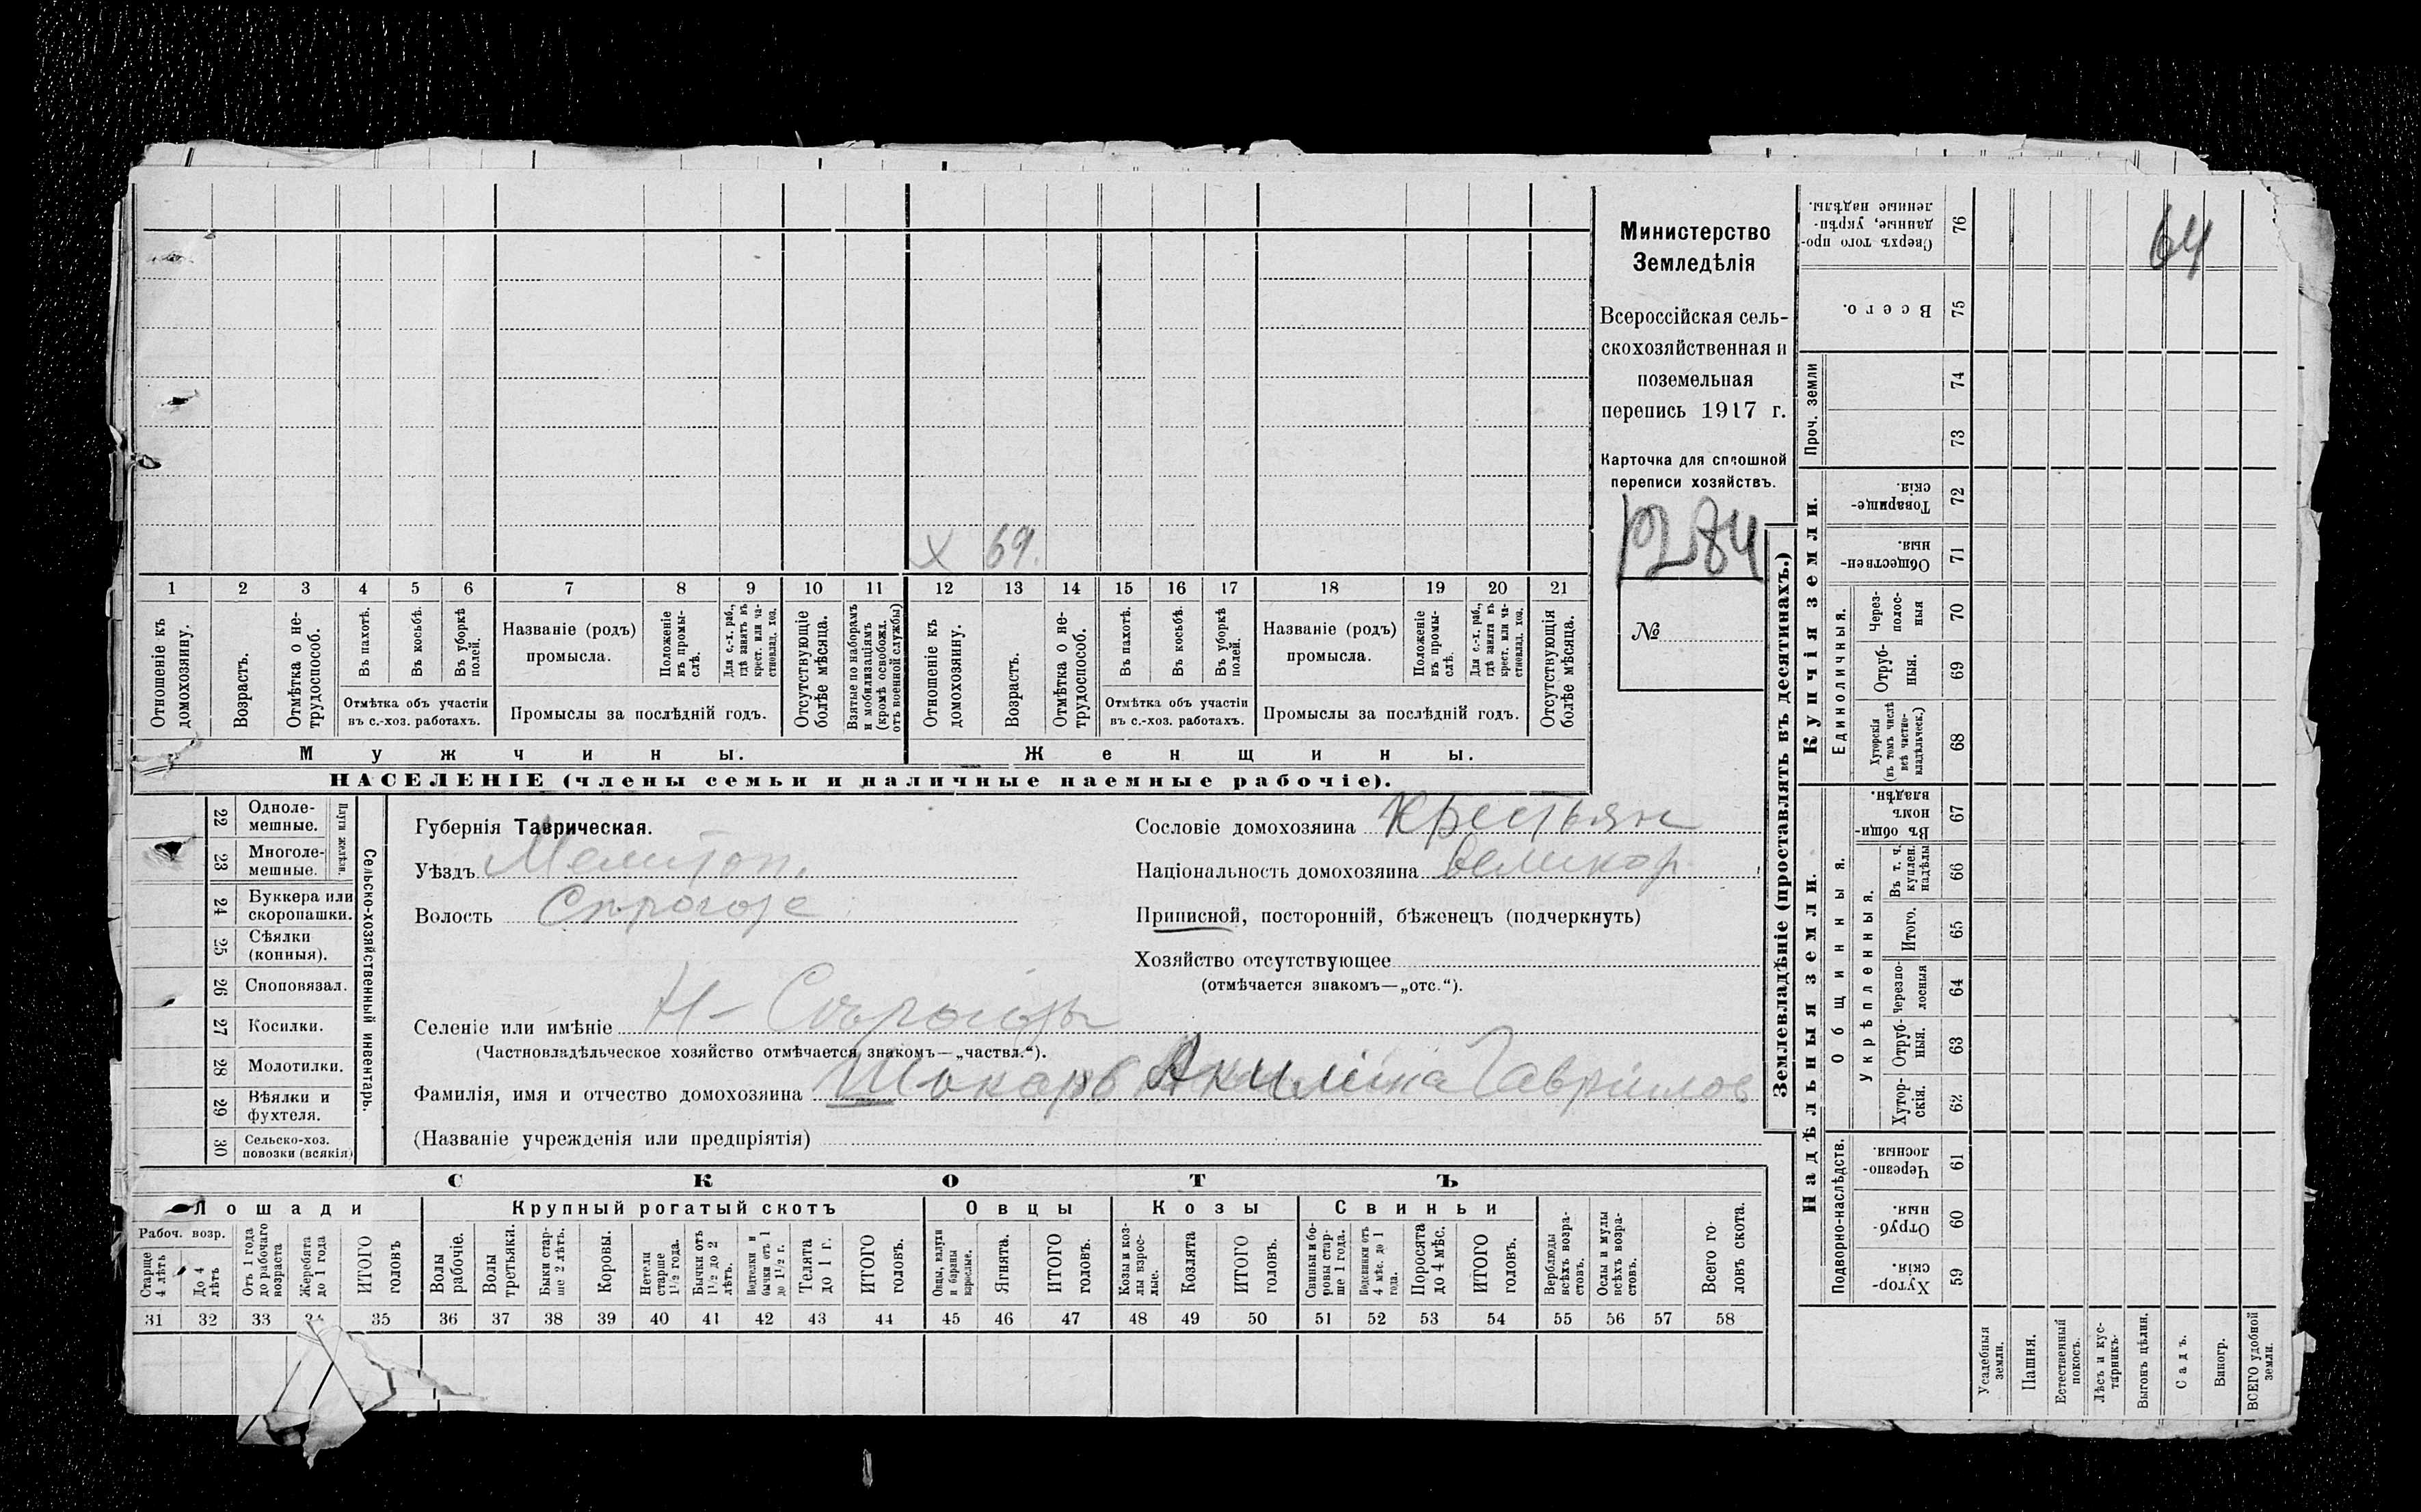 Министерство
Земледѣлія
Всероссійская сель-
скохозяйственная и
поземельная
перепись 1917 г.
Карточка для сплошной
переписи хозяйствъ.
№
64
х 69.
1 2 3 4 5 6 7 8 9 10 11 12 13 14 15 16 17 18 19 20 21
Отношеніе къ домохозяину.
Возрастъ.
Отмѣтка о не-трудоспособ.
Въ пахотѣ.
Въ косьбѣ.
Въ уборкѣ полей.
Отмѣтка объ участіи
въ с.-хоз. работахъ.
Названіе (родъ)
промысла.
Положеніе въ промы-слѣ.
Для с.-х. раб., гдѣ занятъ въ крест. или ча-стновлад. хоз.
Промыслы за послѣдній годъ.
Отсутствующіе болѣе мѣсяца.
Взятые по наборамъ и мобилизаціямъ (кромѣ освобожд. отъ военной службы)
Отношеніе къ домохозяину.
Возрастъ.
Отмѣтка о не-трудоспособ.
Въ пахотѣ.
Въ косьбѣ.
Въ уборкѣ полей.
Отмѣтка объ участіи
въ с.-хоз. работахъ.
Названіе (родъ)
промысла.
Положеніе въ промы-слѣ.
Для с.-х. раб., гдѣ занята въ крест. или ча-стновлад. хоз.
Промыслы за послѣдній годъ.
Отсутствующія болѣе мѣсяца.
Мужчины.
Женщины.
НАСЕЛЕНІЕ (члены семьи и наличные наемные рабочіе).
Сельско-хозяйственный инвентарь.
Плуги желѣзн.
22 Одноле-мешные.
23 Многоле-мешные.
24 Буккера или скоропашки.
25 Сѣялки (конныя).
26 Сноповязал.
27 Косилки.
28 Молотилки.
29 Вѣялки и фухтеля.
30 Сельско-хоз. повозки (всякія)
Губернія Таврическая.
Уѣздъ Мелитоп.
Волость
Сословіе домохозяина Крестьян
Національность домохозяина Великор
Приписной, посторонній, бѣженецъ (подчеркнуть)
Хозяйство отсутствующее
(отмѣчается знакомъ—„отс.“).
Селеніе или имѣніе Н-Сѣрогозы
(Частновладѣльческое хозяйство отмѣчается знакомъ—„частвл.“).
Фамилія, имя и отчество домохозяина Шокарь Акилина Гаврилов
(Названіе учрежденія или предпріятія)
СКОТЪ
Лошади
Крупный рогатый скотъ
Овцы
Козы
Свиньи
Рабоч. возр.
Старше 4 лѣтъ
До 4 лѣтъ
Отъ 1 года до рабочаго возраста
Жеребята до 1 года
ИТОГО головъ
Волы рабочіе.
Волы третьяка.
Быки стар-ше 2 лѣтъ.
Коровы.
Нетели старше 1½ года.
Бычки отъ 1½ до 2 лѣтъ.
Подтелки и бычки отъ 1 до 1½ г.
Телята до 1 г.
ИТОГО головъ.
Овцы, валухи и бараны взрослые.
Ягнята.
ИТОГО головъ.
Козы и коз-лы взрос-лые.
Козлята
ИТОГО головъ.
Свиньи и бо-ровы стар-ше 1 года.
Подсвинки отъ 4 мѣс. до 1 года.
Поросята до 4 мѣс.
ИТОГО головъ.
Верблюды всѣхъ возра-стовъ.
Ослы и мулы всѣхъ возра-стовъ.
Всего го-ловъ скота.
31 32 33 34 35 36 37 38 39 40 41 42 43 44 45 46 47 48 49 50 51 52 53 54 55 56 57 58
Землевладѣніе (проставлять въ десятинахъ.)
Надѣльныя земли.
Купчія земли.
Подворно-наслѣдств.
Общинныя.
Укрѣпленныя.
Единоличныя.
Проч. земли
Сверхъ того про-данные, укрѣп-ленные надѣлы. 76
Всего. 75
74
73
Товарище-скія. 72
Обществен-ныя. 71
Через-полос-ныя 70
Отруб-ныя. 69
Хуторскія (въ томъ числѣ всѣ частно-владѣльческ.) 68
Въ общи-номъ владѣн. 67
Въ т. ч. куплен. надѣлы 66
Итого. 65
Черезпо-лосныя 64
Отруб-ныя. 63
Хутор-скія. 62
Черезпо-лосныя. 61
Отруб-ныя. 60
Хутор-скія. 59
Усадебныя земли.
Пашня.
Естественный покосъ.
Лѣсъ и кус-тарникъ.
Выгонъ цѣлин.
Садъ.
Виногр.
ВСЕГО удобной земли.